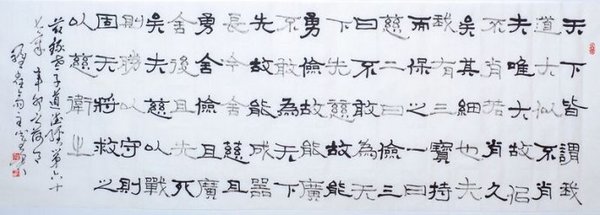 天下皆謂我
道大似不肖
夫唯大故佀
不肖若肖久
矣其細也夫
我有三寶持
而保之一曰
慈二曰儉三
曰不敢為天
下先慈故能
勇儉故能廣
不敢為天下
先故能成器
長今舍慈且
勇舍儉且廣
舍後且先死
矣夫慈以戰
則勝以守則
固天將救之
以慈衛之
老子道德經第六十
七章 辛卯